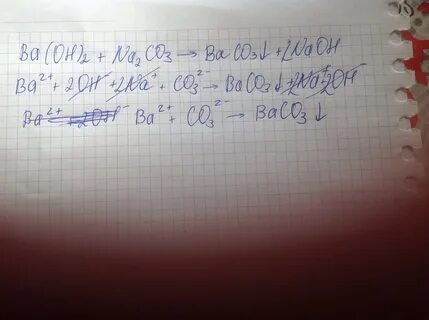 Ba(OH)₂ + Na₂CO₃ → BaCO₃↓ + 2NaOH
Ba²⁺ + 2OH⁻ + 2Na⁺ + CO₃²⁻ → BaCO₃↓ + 2Na⁺ 2OH⁻
Ba²⁺ + 2OH⁻ Ba²⁺ + CO₃²⁻ → BaCO₃↓